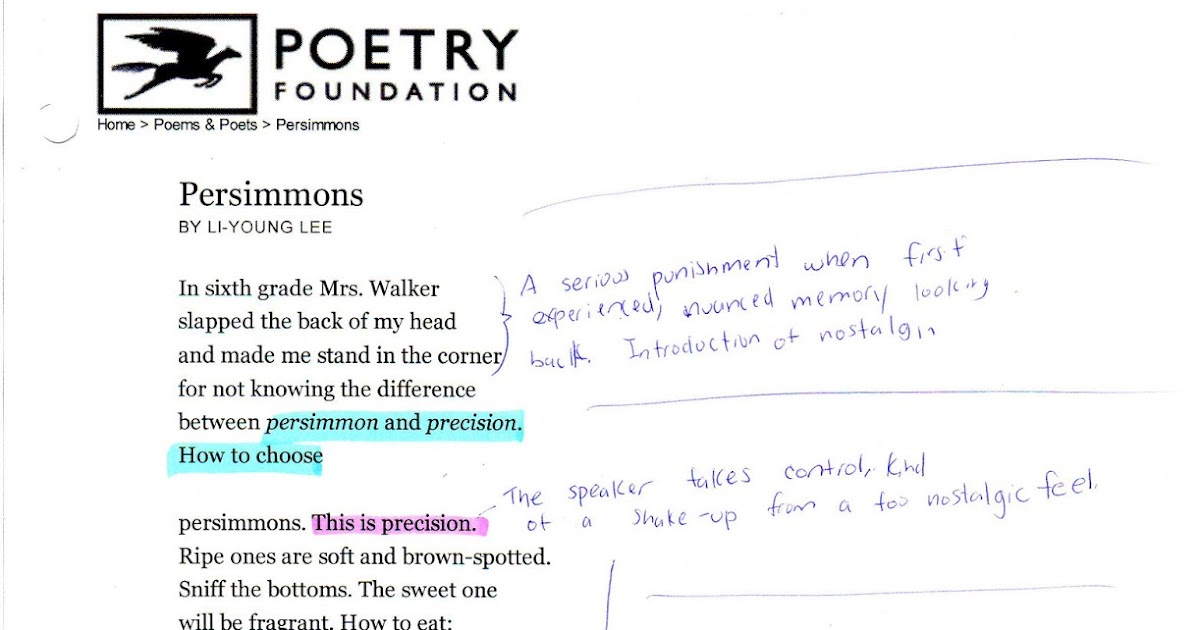 POETRY
FOUNDATION
Home > Poems & Poets > Persimmons
Persimmons
BY LI-YOUNG LEE
In sixth grade Mrs. Walker
slapped the back of my head
and made me stand in the corner
for not knowing the difference
between persimmon and precision.
How to choose
A serious punishment when first
experienced, nuanced memory looking
back. Introduction of nostalgia
persimmons. This is precision.
Ripe ones are soft and brown-spotted.
Sniff the bottoms. The sweet one
will be fragrant. How to eat:
The speaker takes control, kind
of a shake-up from a too nostalgic feel.